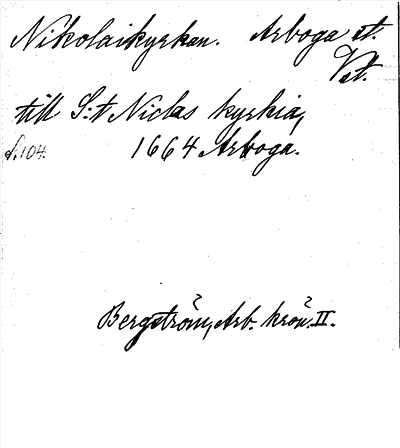 Nikolaikyrkan. Arboga st.
Vst.
till S:t Niclas kyrkia,
s. 104. 1664 Arboga.
Bergström, Arb. krön. II.